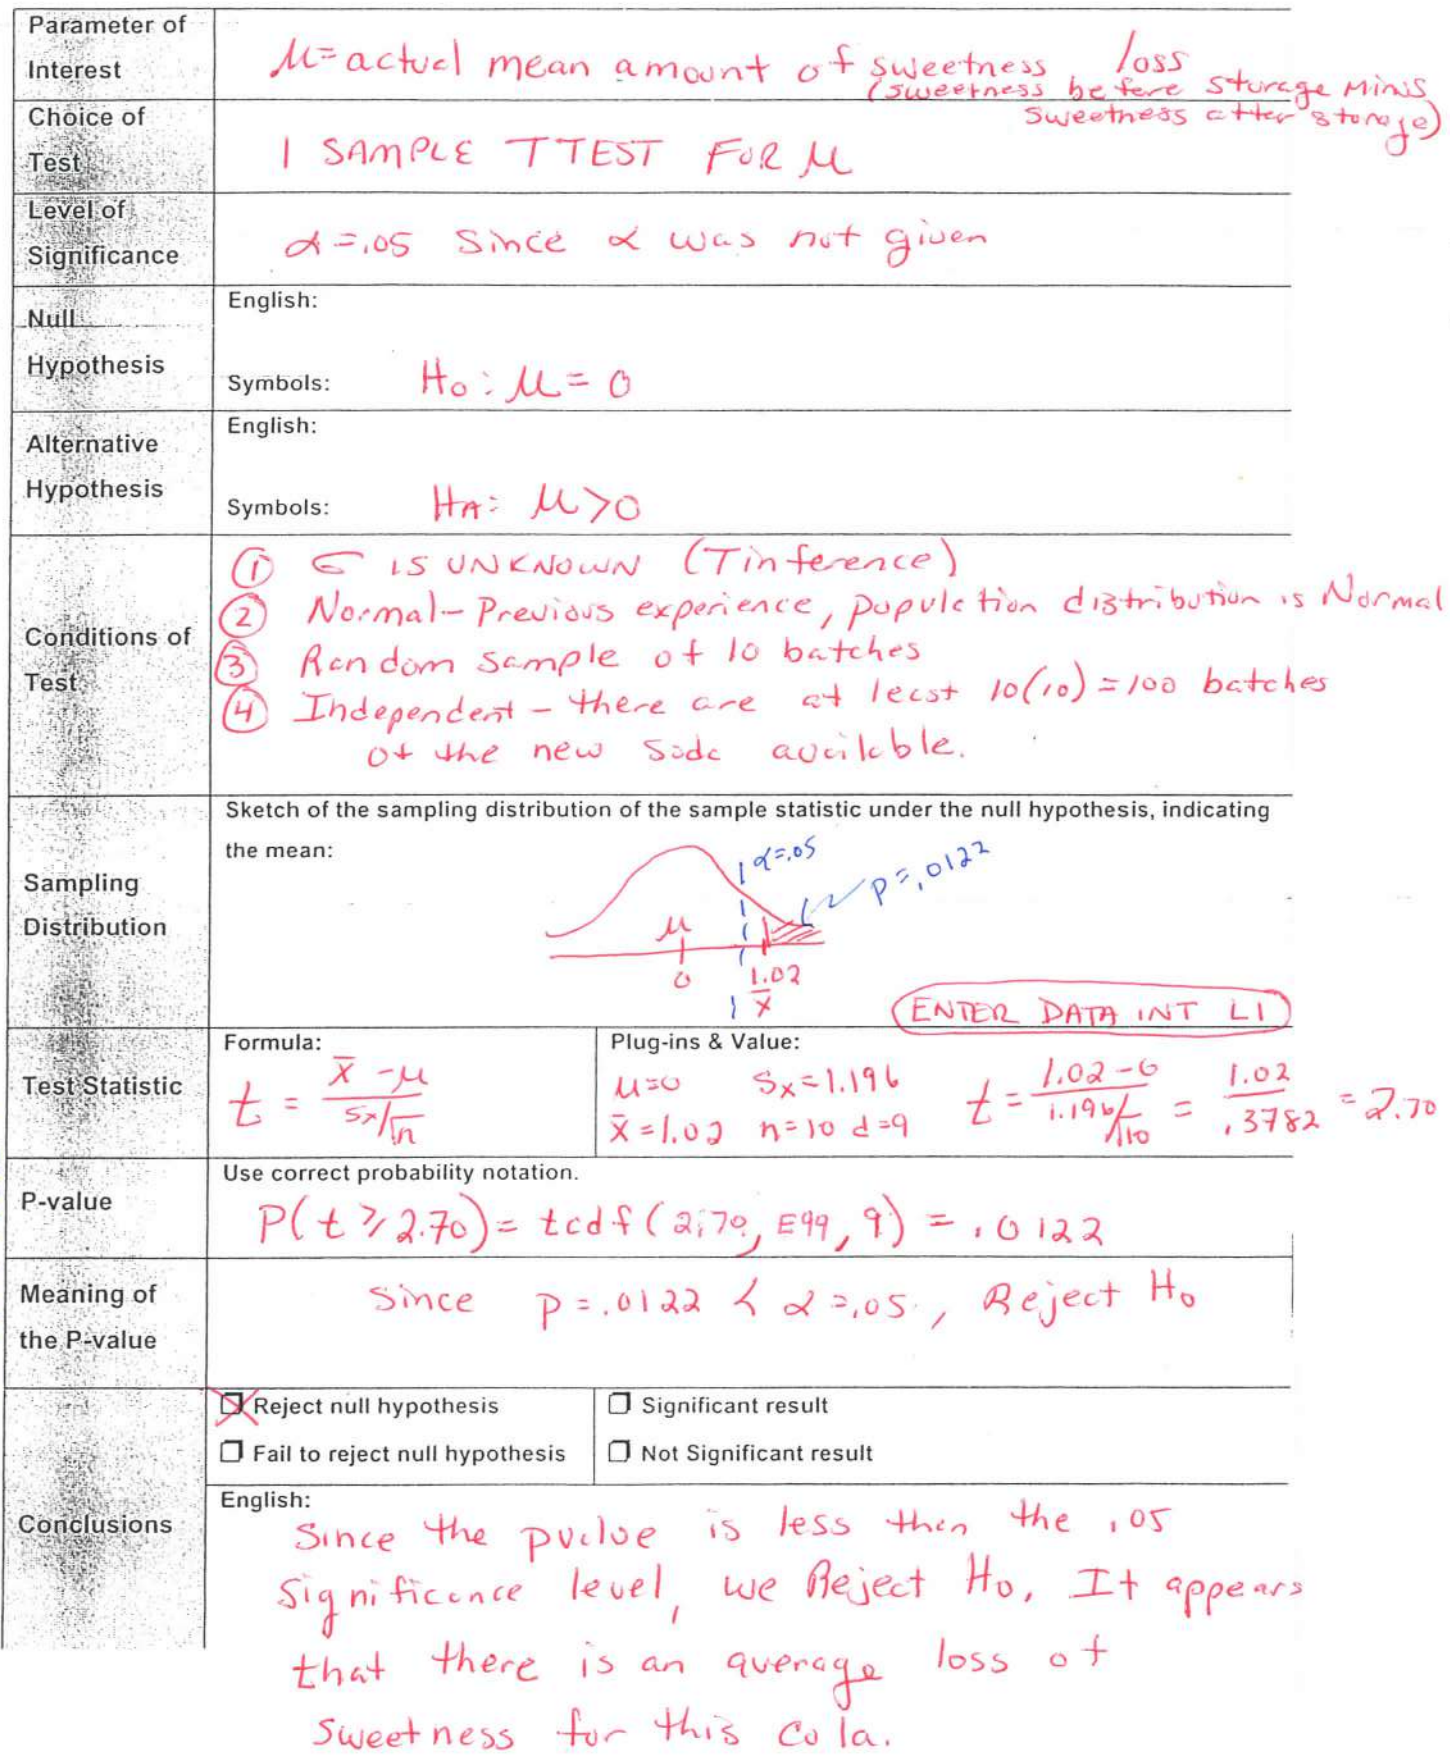 Parameter of Interest
μ=actual mean amount of sweetness loss
(sweetness before storage minus
sweetness after storage)
Choice of Test
1 SAMPLE T TEST FOR μ
Level of Significance
α=.05 Since α was not given
Null Hypothesis
English:
Symbols: H₀: μ = 0
Alternative Hypothesis
English:
Symbols: HA: μ>0
Conditions of Test
① σ IS UNKNOWN (T inference)
② Normal- Previous experience, population distribution is Normal
③ Random sample of 10 batches
④ Independent - there are at least 10(10)=100 batches
of the new soda available.
Sampling Distribution
Sketch of the sampling distribution of the sample statistic under the null hypothesis, indicating
the mean:
α=.05
p=.0122
μ
0 1.02
x̄
ENTER DATA INT L1
Test Statistic
Formula:
t = x̄ - μ / sx/√n
Plug-ins & Value:
μ=0 Sx=1.196
x̄=1.02 n=10 d=9
t = 1.02-0 / 1.196/√10 = 1.02 / .3782 = 2.70
P-value
Use correct probability notation.
P(t ≥ 2.70) = tcdf(2.70, E99, 9) = .0122
Meaning of the P-value
Since p=.0122 < α=.05, Reject H₀
Conclusions
Reject null hypothesis
Significant result
Fail to reject null hypothesis
Not Significant result
English:
Since the pvalue is less than the .05
significance level, we Reject H₀. It appears
that there is an average loss of
sweetness for this cola.